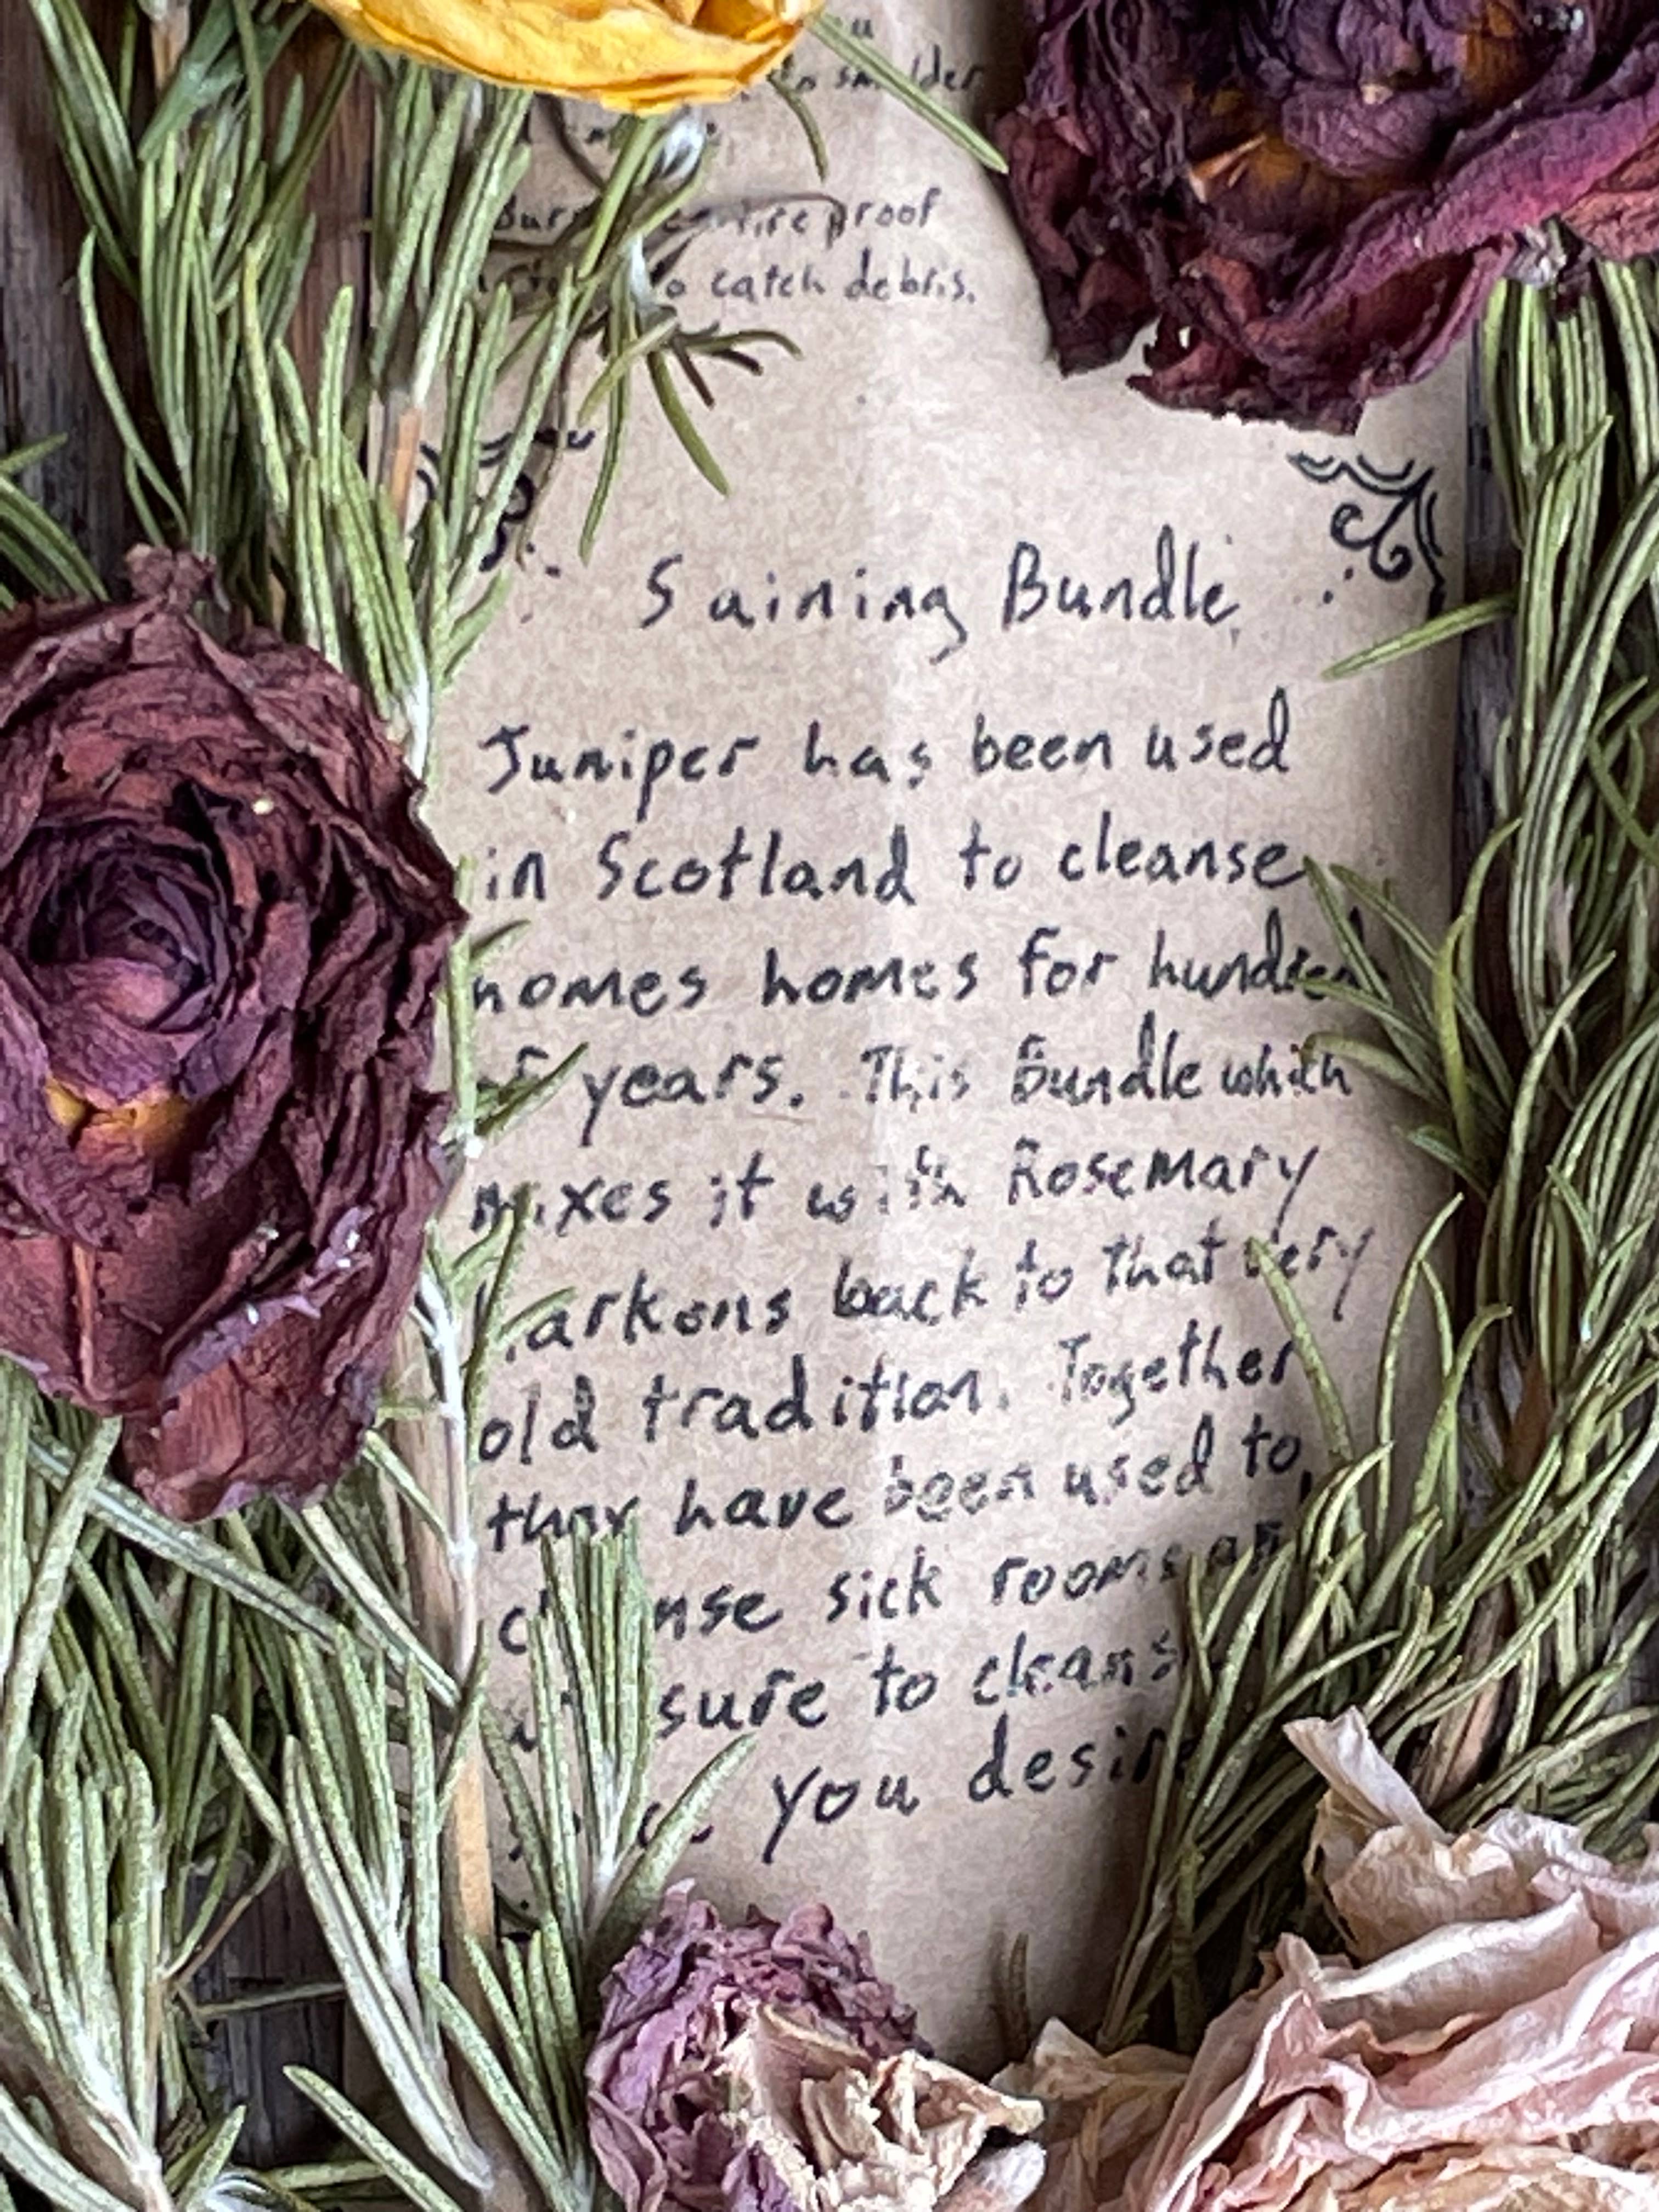 to smolder
proof
to catch debris.
Saining Bundle
Juniper has been used
in Scotland to cleanse
homes homes for hundred
of years. This Bundle which
mixes it with Rosemary
harkens back to that very
old tradition. Together
they have been used to
cleanse sick rooms
sure to cleanse
you desire